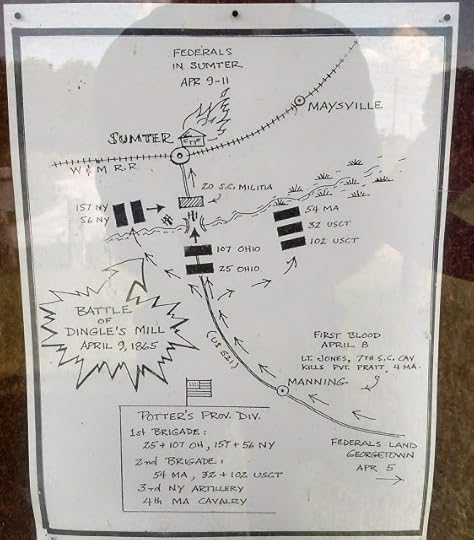 FEDERALS
IN SUMTER
APR 9-11
MAYSVILLE
SUMTER
W & M R.R
20 S.C. MILITIA
157 NY
56 NY
54 MA
32 USCT
102 USCT
107 OHIO
25 OHIO
BATTLE
OF
DINGLE'S MILL
APRIL 9, 1865
(US 521)
FIRST BLOOD
APRIL 8
LT. JONES, 7TH S.C. CAV
KILLS PVT. PRATT, 4 MA.
MANNING
FEDERALS LAND
GEORGETOWN
APR 5
POTTER'S PROV. DIV.
1st BRIGADE:
25 + 107 OH, 157 + 56 NY
2nd BRIGADE:
54 MA, 32 + 102 USCT
3rd NY ARTILLERY
4th MA CAVALRY